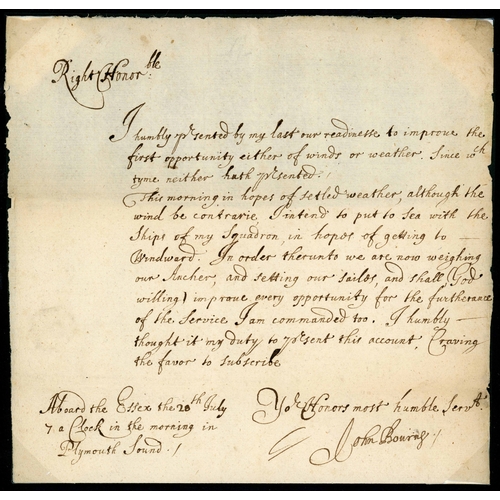 Right Honorble:
I humbly prsented by my last our readinesse to improve the
first opportunity either of winds or weather. Since wch
tyme neither hath prsented:/
This morning in hopes of setled weather, although the
wind be contrarie, I intend to put to Sea with the
Ships of my Squadron, in hopes of getting to —
Windward: In order therunto we are now weighing
our Ancher, and setting our sailes, and shall (God
willing) improve every opportunity for the furtherance
of the Service I am commanded too. I humbly —
thought it my duty to prsent this account, Craving
the favor to subscribe
Aboard the Essex the 28th July
7 a Clock in the morning in
Plymouth Sound:/
Yor Honors most humble Servt
John Bourne